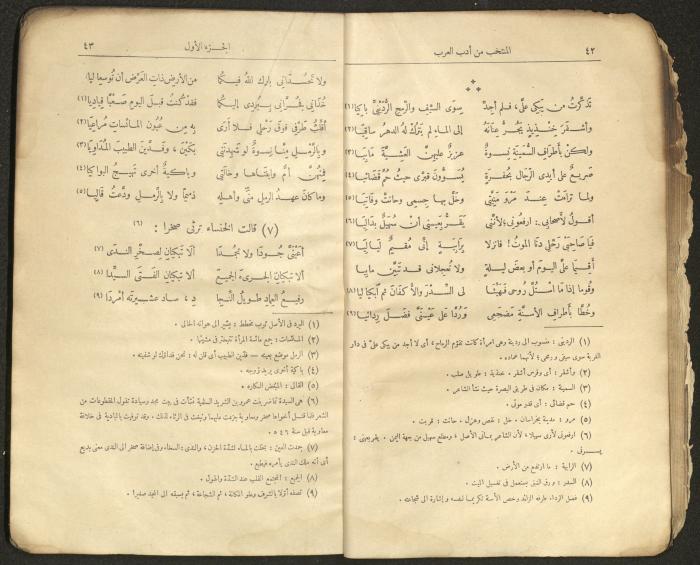 ٤٢
المنتخب من أدب العرب
تذكّرتُ من يبكى علىّ، فلم أجدْ سوى السّيف والرّمح الرُّدَينىِّ باكيا (١)
وأشقرَ خِنذيذٍ يجُرُّ عِنانَهُ إلى الماء لم يتركْ لهُ الدهرُ ساقيا (٢)
ولكنْ بأطرافِ السُّمَينة نِسوةٌ عزيزٌ عليهنّ العشيّةَ مابيا (٣)
صريعٌ على أيدى الرّجال بقفرةٍ يُسوُّون قبرى حيث حُمّ قضائيا (٤)
ولما تراءتْ عند مَرْوَ منيّتى وخلّ بها جسمى وحانتْ وفاتيا (٥)
أقولُ لأصحابى: ارفعونى؛ لأننى يقَرُّ بعينى أن سُهيلٌ بدا ليا (٦)
فيا صاحبىْ رحلى دنا الموتُ! فانزلا برابيةٍ إنى مُقيمٌ لياليا (٧)
أقيما علىّ اليومَ أو بعضَ ليلةٍ ولا تُعجلانى قد تبيّن مابيا
وقوما إذا ما استُلّ روحى فهيّئا لى السّدْرَ والأكفانَ ثم ابكيا ليا (٨)
وخُطّا بأطرافِ الأسنّة مضجعى ورُدّا على عينىّ فضلَ ردائيا (٩)
(١) الردينى : منسوب الى ردينة وهى امرأة كانت تقوم الرماح، أى لا أجد من يبكى علىّ فى دار
الغربة سوى سيفى ورمحى؛ لأنهما عماده .
(٢) وأشقر : أى وفرس أشقر . خنذيذ : طويل صلب .
(٣) السمينة : مكان فى طريق البصرة حيث نشأ الشاعر .
(٤) حم قضائى : أى قدر موتى .
(٥) مرو : مدينة بخراسان . خل : نقص وهزل . حانت : قربت .
(٦) ارفعونى لأرى سهيلا، لأن الشاعر يمانى الأصل، ومطلع سهيل من جهة اليمن . يقر بعينى :
يسرنى .
(٧) الرابية : ما ارتفع من الأرض .
(٨) السدر : ورق النبق يستعمل فى تغسيل الميت .
(٩) فضل الرداء طرفه الزائد وخص الأسنة تكريما لنفسه وإشارة الى شجاعته .
الجزء الأول
٤٣
ولا تحسُدانى بارك اللهُ فيكما من الأرض ذاتِ العَرْض أن تُوسِعا ليا
خُذانى فجُرّانى ببُردى إليكما فقد كنتُ قبلَ اليوم صعبًا قياديا (١)
أقلّبُ طرفى فوق رحلى فلا أرى به من عيون المؤنسات مُراعيا (٢)
وبالرّمل منّا نسوةٌ لو شهِدننى بكَيْن، وفدّين الطبيب المداويا (٣)
فمنهنّ أمّى وابنتاها وخالتى وباكيةٌ أخرى تهيجُ البواكيا (٤)
وما كان عهدُ الرمل منّى وأهلِه ذميًما ولا بالرمل ودّعتُ قاليا (٥)
(٧) قالت الخنساء ترثى صخرا : (٦)
أعينىّ جودا ولا تجمُدا ألا تبكيان لصخرِ النّدى (٧)
ألا تبكيان الجرىءَ الجميعَ ألا تبكيان الفتى السيّدا (٨)
رفيعُ العمادِ طويلُ النّجا دِ، ساد عشيرتَه أمردا (٩)
(١) البرد فى الأصل ثوب مخطط : يشير الى هوانه الحالى .
(٣) الرمل موضع بعينه — فدّين الطبيب أى قلن له : نحن فداؤك لو شفيته .
(٤) باكية أخرى يريد زوجه .
(٥) القالى : المبغض الكاره .
(٦) هى السيدة تماضر بنت عمرو بن الشريد السلمية نشأت فى بيت مجد وسيادة تقول المقطوعات من
(٨) الجميع : المجتمع القلب عند الشدة والهول .